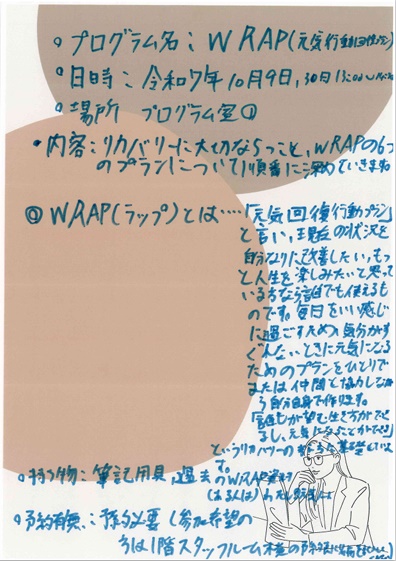 ・プログラム名：WRAP(元気行動回復プラン)
・日時：令和7年10月9日, 30日 13:00
・場所 プログラム室①
・内容：リカバリーに大切な5つこと, WRAPの6つ
のプランについて順番に深めていきます。
◎WRAP(ラップ)とは…「元気回復行動プラン」
と言い, 現在の状況を
自分なりに改善したい, もっ
と人生を楽しみたいと思って
いる方なら誰でも使えるも
のです。毎日をいい感じ
に過ごすため, 気分がす
ぐれないときに元気になる
ためのプランをひとりで
または仲間と協力しなが
ら自分自身で作ります。
「誰もが望む生き方ができ
るし, 元気になることができる」
というリカバリーの
す。
・持ち物：筆記用具, 過去のWRAP資料
・予約有無：予約必要(参加希望の
方は1階スタッフルーム